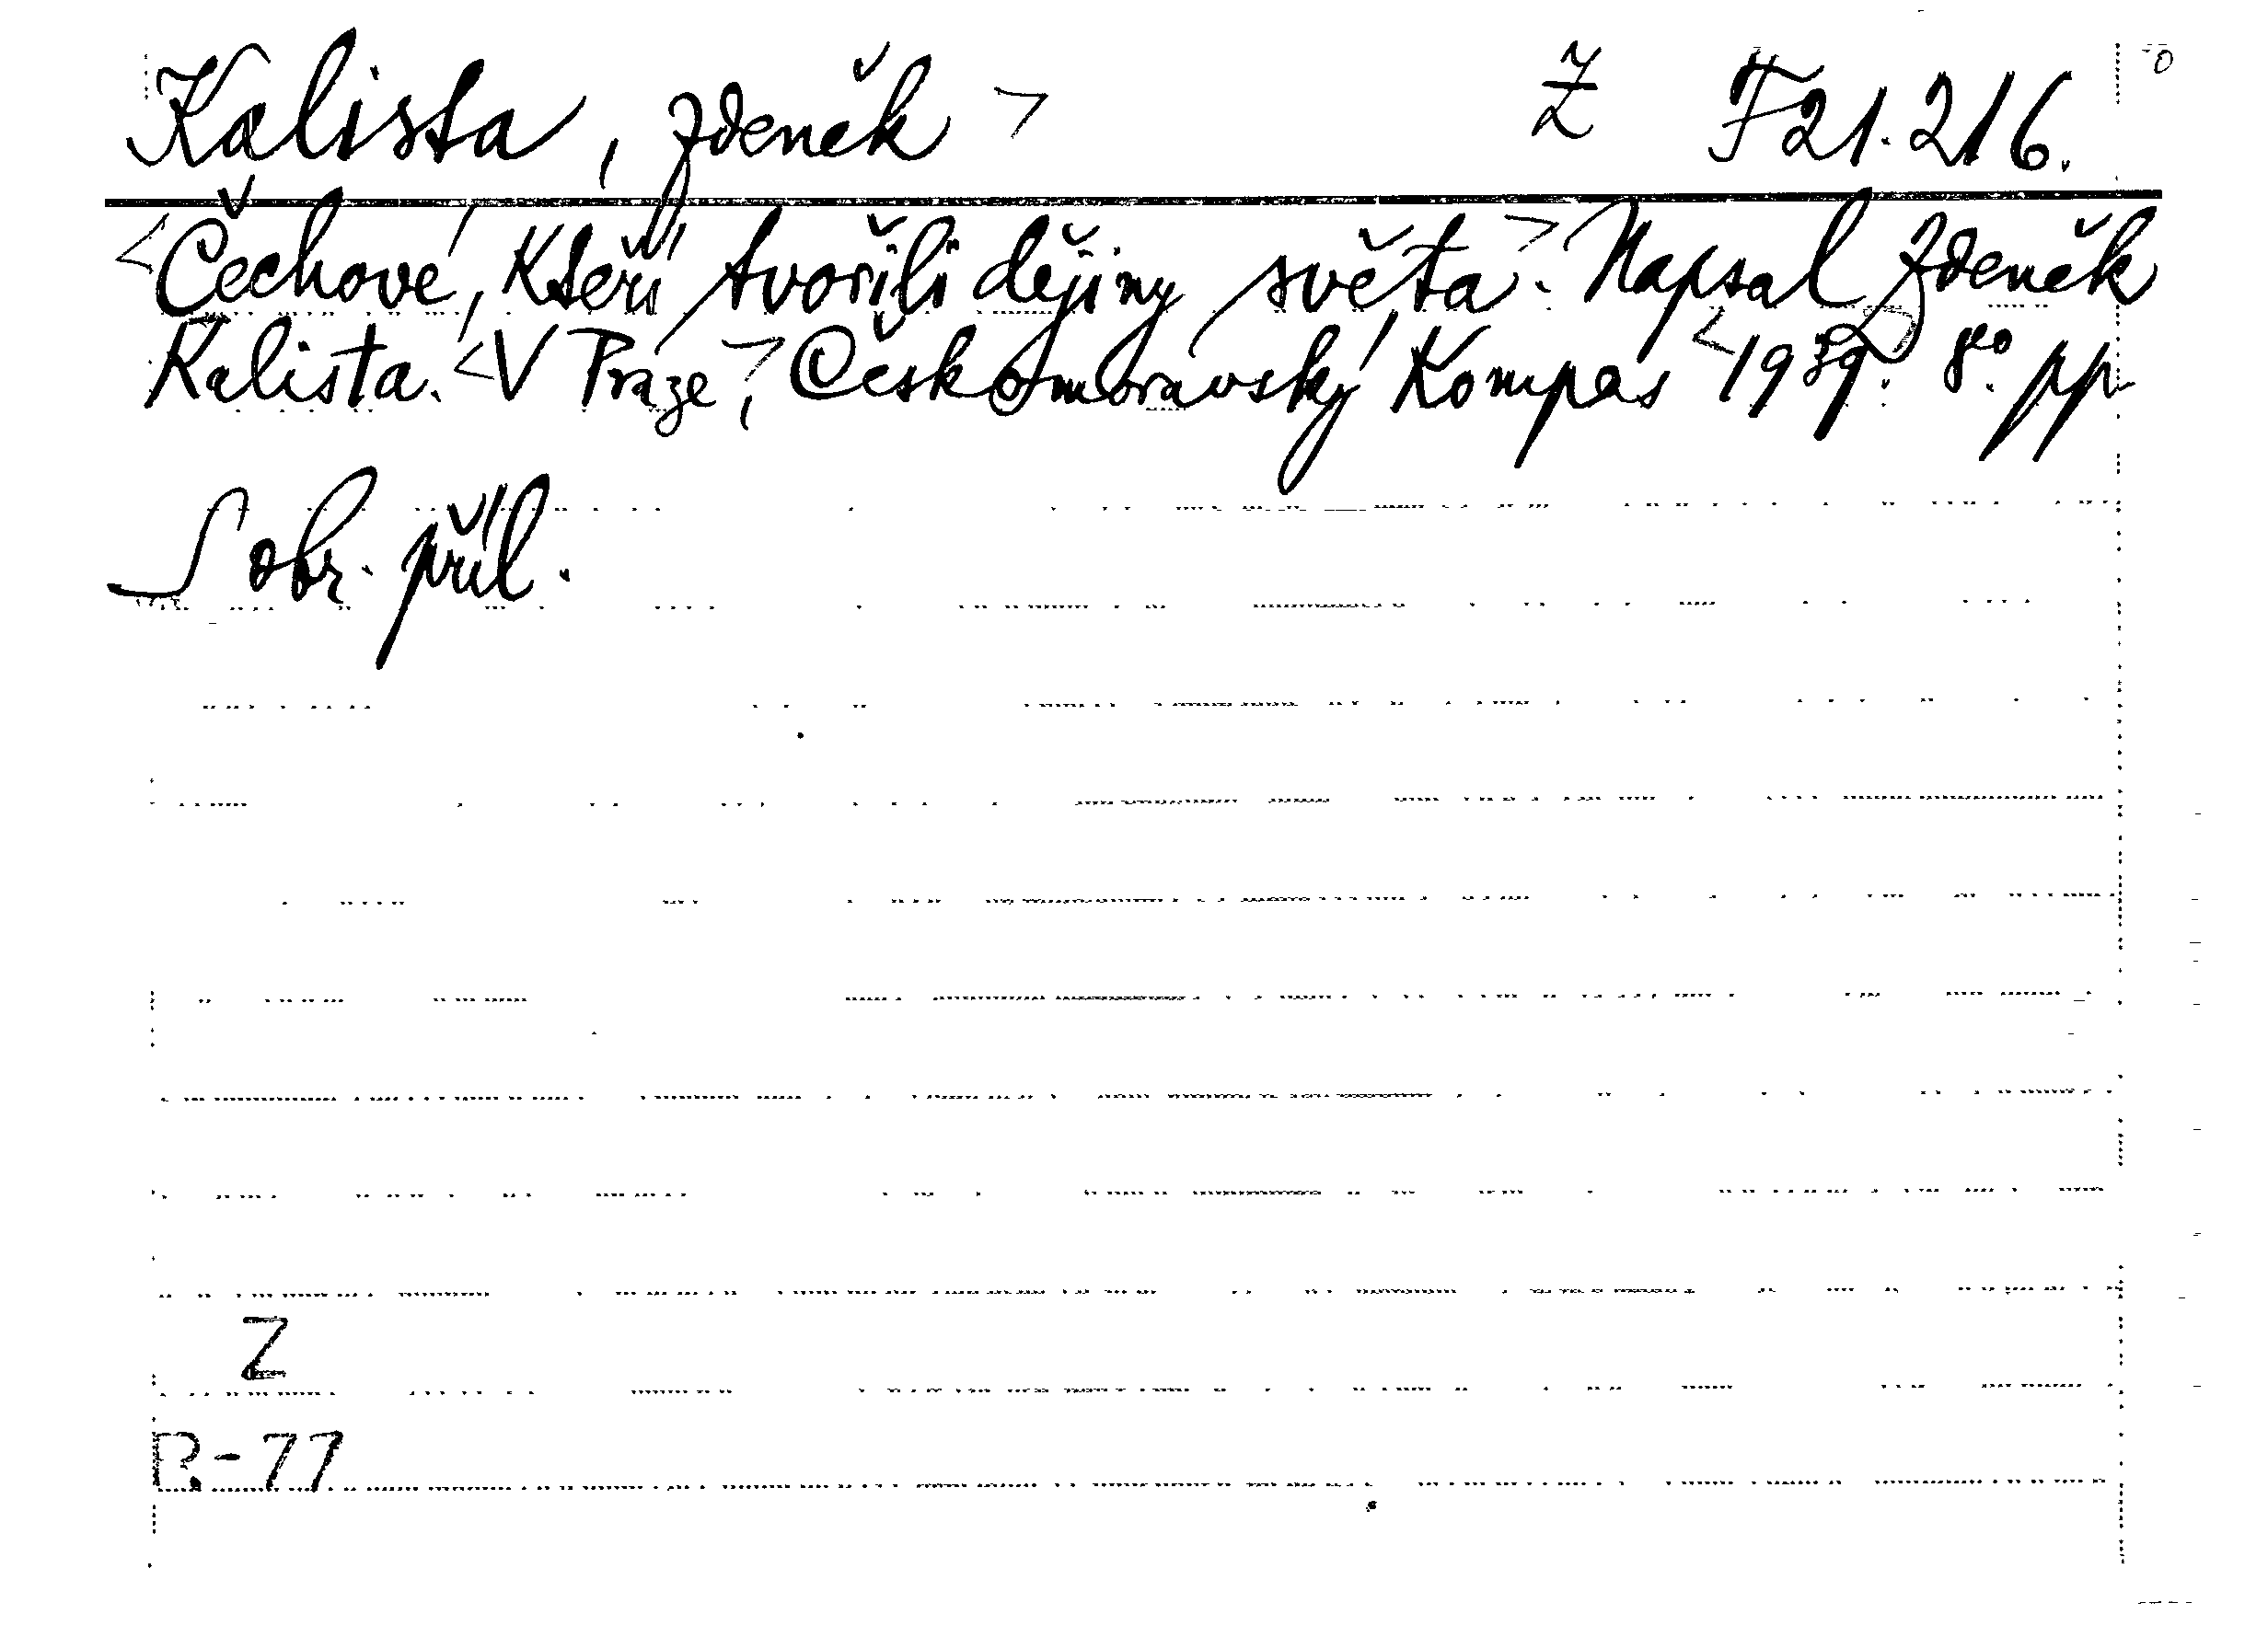 Kalista, Zdeněk > Z F 21.216.
<Čechové, kteří tvořili dějiny světa.> Napsal Zdeněk
Kalista. <V Praze>, Českomoravský Kompas <1939>. 8° pp
S obr. příl.
Z
R-77